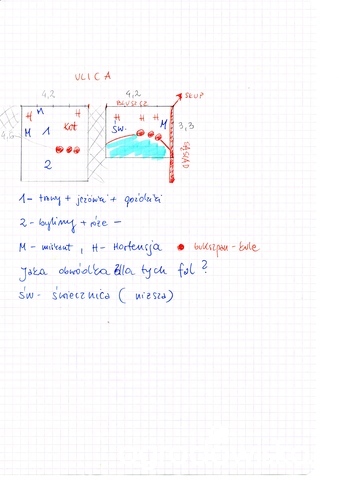 ULICA
4,2
4,2
BLUSZCZ
SŁUP
H
M
H
M
1
Kot
2
H
H
H
ŚW.
M
3,3
SĄSIAD
1 - trawy + jeżówki + goździki
2 - byliny + róże -
M - miskant, H - Hortensja bukszpan - kule
Jaka obwódka dla tych fal?
ŚW - świecznica (niższa)